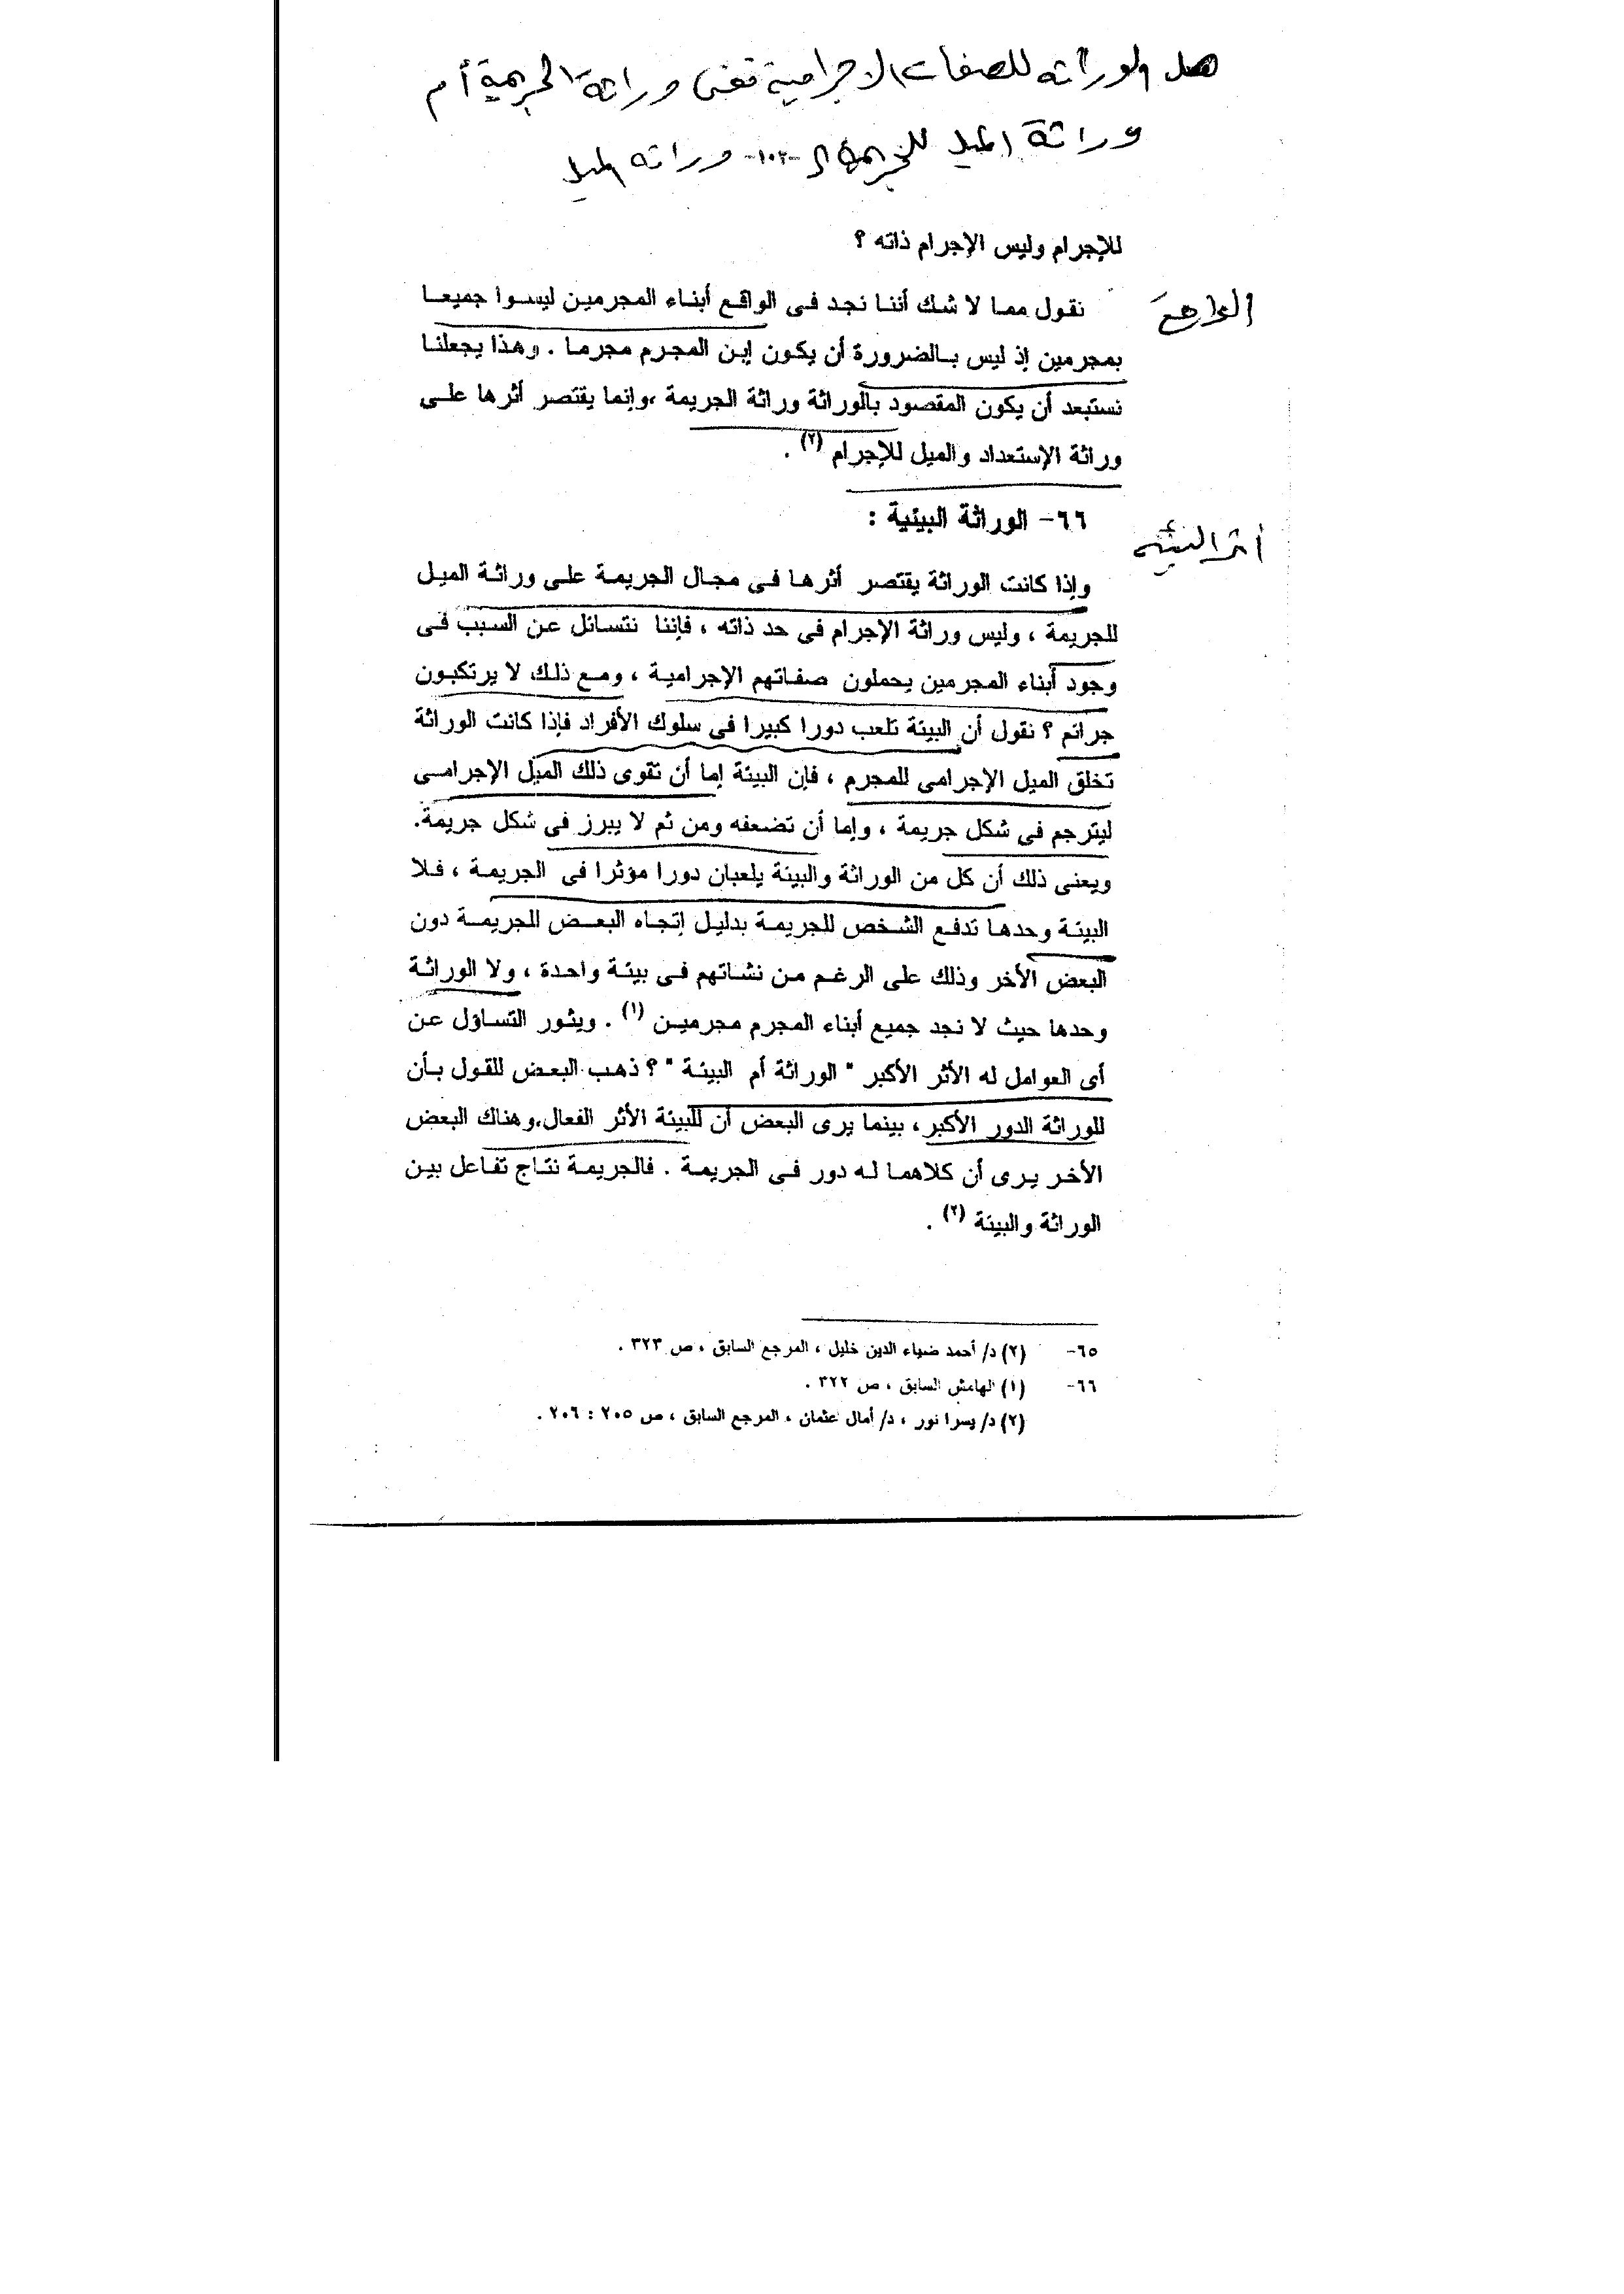 هل الوراثه للصفات الاجرامية تعنى وراثة الجريمة أم
وراثة الميل للجريمة -١٠٢- وراثه الميل
للإجرام وليس الإجرام ذاته ؟
الواقع
نقول مما لا شك أننا نجد فى الواقع أبناء المجرمين ليسوا جميعا
بمجرمين إذ ليس بالضرورة أن يكون إبن المجرم مجرما . وهذا يجعلنا
نستبعد أن يكون المقصود بالوراثة وراثة الجريمة ،وإنما يقتصر أثرها على
وراثة الإستعداد والميل للإجرام (٢) .
٦٦- الوراثة البيئية :
أثر البيئه
وإذا كانت الوراثة يقتصر أثرها فى مجال الجريمة على وراثة الميل
للجريمة ، وليس وراثة الإجرام فى حد ذاته ، فإننا نتسائل عن السبب فى
وجود أبناء المجرمين يحملون صفاتهم الإجرامية ، ومع ذلك لا يرتكبون
جرائم ؟ نقول أن البيئة تلعب دورا كبيرا فى سلوك الأفراد فإذا كانت الوراثة
تخلق الميل الإجرامى للمجرم ، فإن البيئة إما أن تقوى ذلك الميل الإجرامى
ليترجم فى شكل جريمة ، وإما أن تضعفه ومن ثم لا يبرز فى شكل جريمة.
ويعنى ذلك أن كل من الوراثة والبيئة يلعبان دورا مؤثرا فى الجريمة ، فلا
البيئة وحدها تدفع الشخص للجريمة بدليل إتجاه البعض للجريمة دون
البعض الأخر وذلك على الرغم من نشاتهم فى بيئة واحدة ، ولا الوراثة
وحدها حيث لا نجد جميع أبناء المجرم مجرمين (١) . ويثور التساؤل عن
أى العوامل له الأثر الأكبر " الوراثة أم البيئة " ؟ ذهب البعض للقول بأن
للوراثة الدور الأكبر ، بينما يرى البعض أن للبيئة الأثر الفعال،وهناك البعض
الأخر يرى أن كلاهما له دور فى الجريمة . فالجريمة نتاج تفاعل بين
الوراثة والبيئة (٢) .
٦٥- (٢) د/ أحمد ضياء الدين خليل ، المرجع السابق ، ص ٣٢٣ .
٦٦- (١) الهامش السابق ، ص ٣٢٢ .
(٢) د/ يسرا نور ، د/ أمال عثمان ، المرجع السابق ، ص ٢٠٥ : ٢٠٦ .